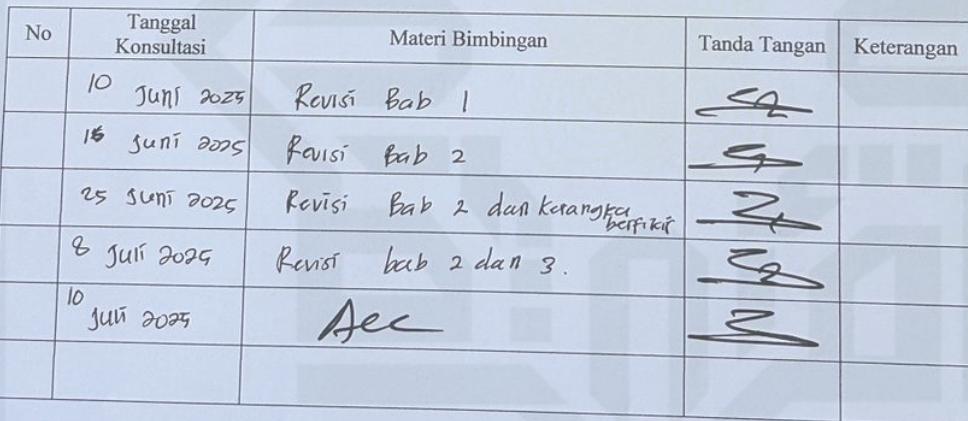 No Tanggal Konsultasi Materi Bimbingan Tanda Tangan Keterangan
10 Juni 2025 Revisi Bab 1
Juni 2025 Revisi Bab 2
25 Juni 2025 Revisi Bab 2 dan kerangka berfikir
8 Juli 2025 Revisi bab 2 dan 3.
10 Juli 2025 Acc